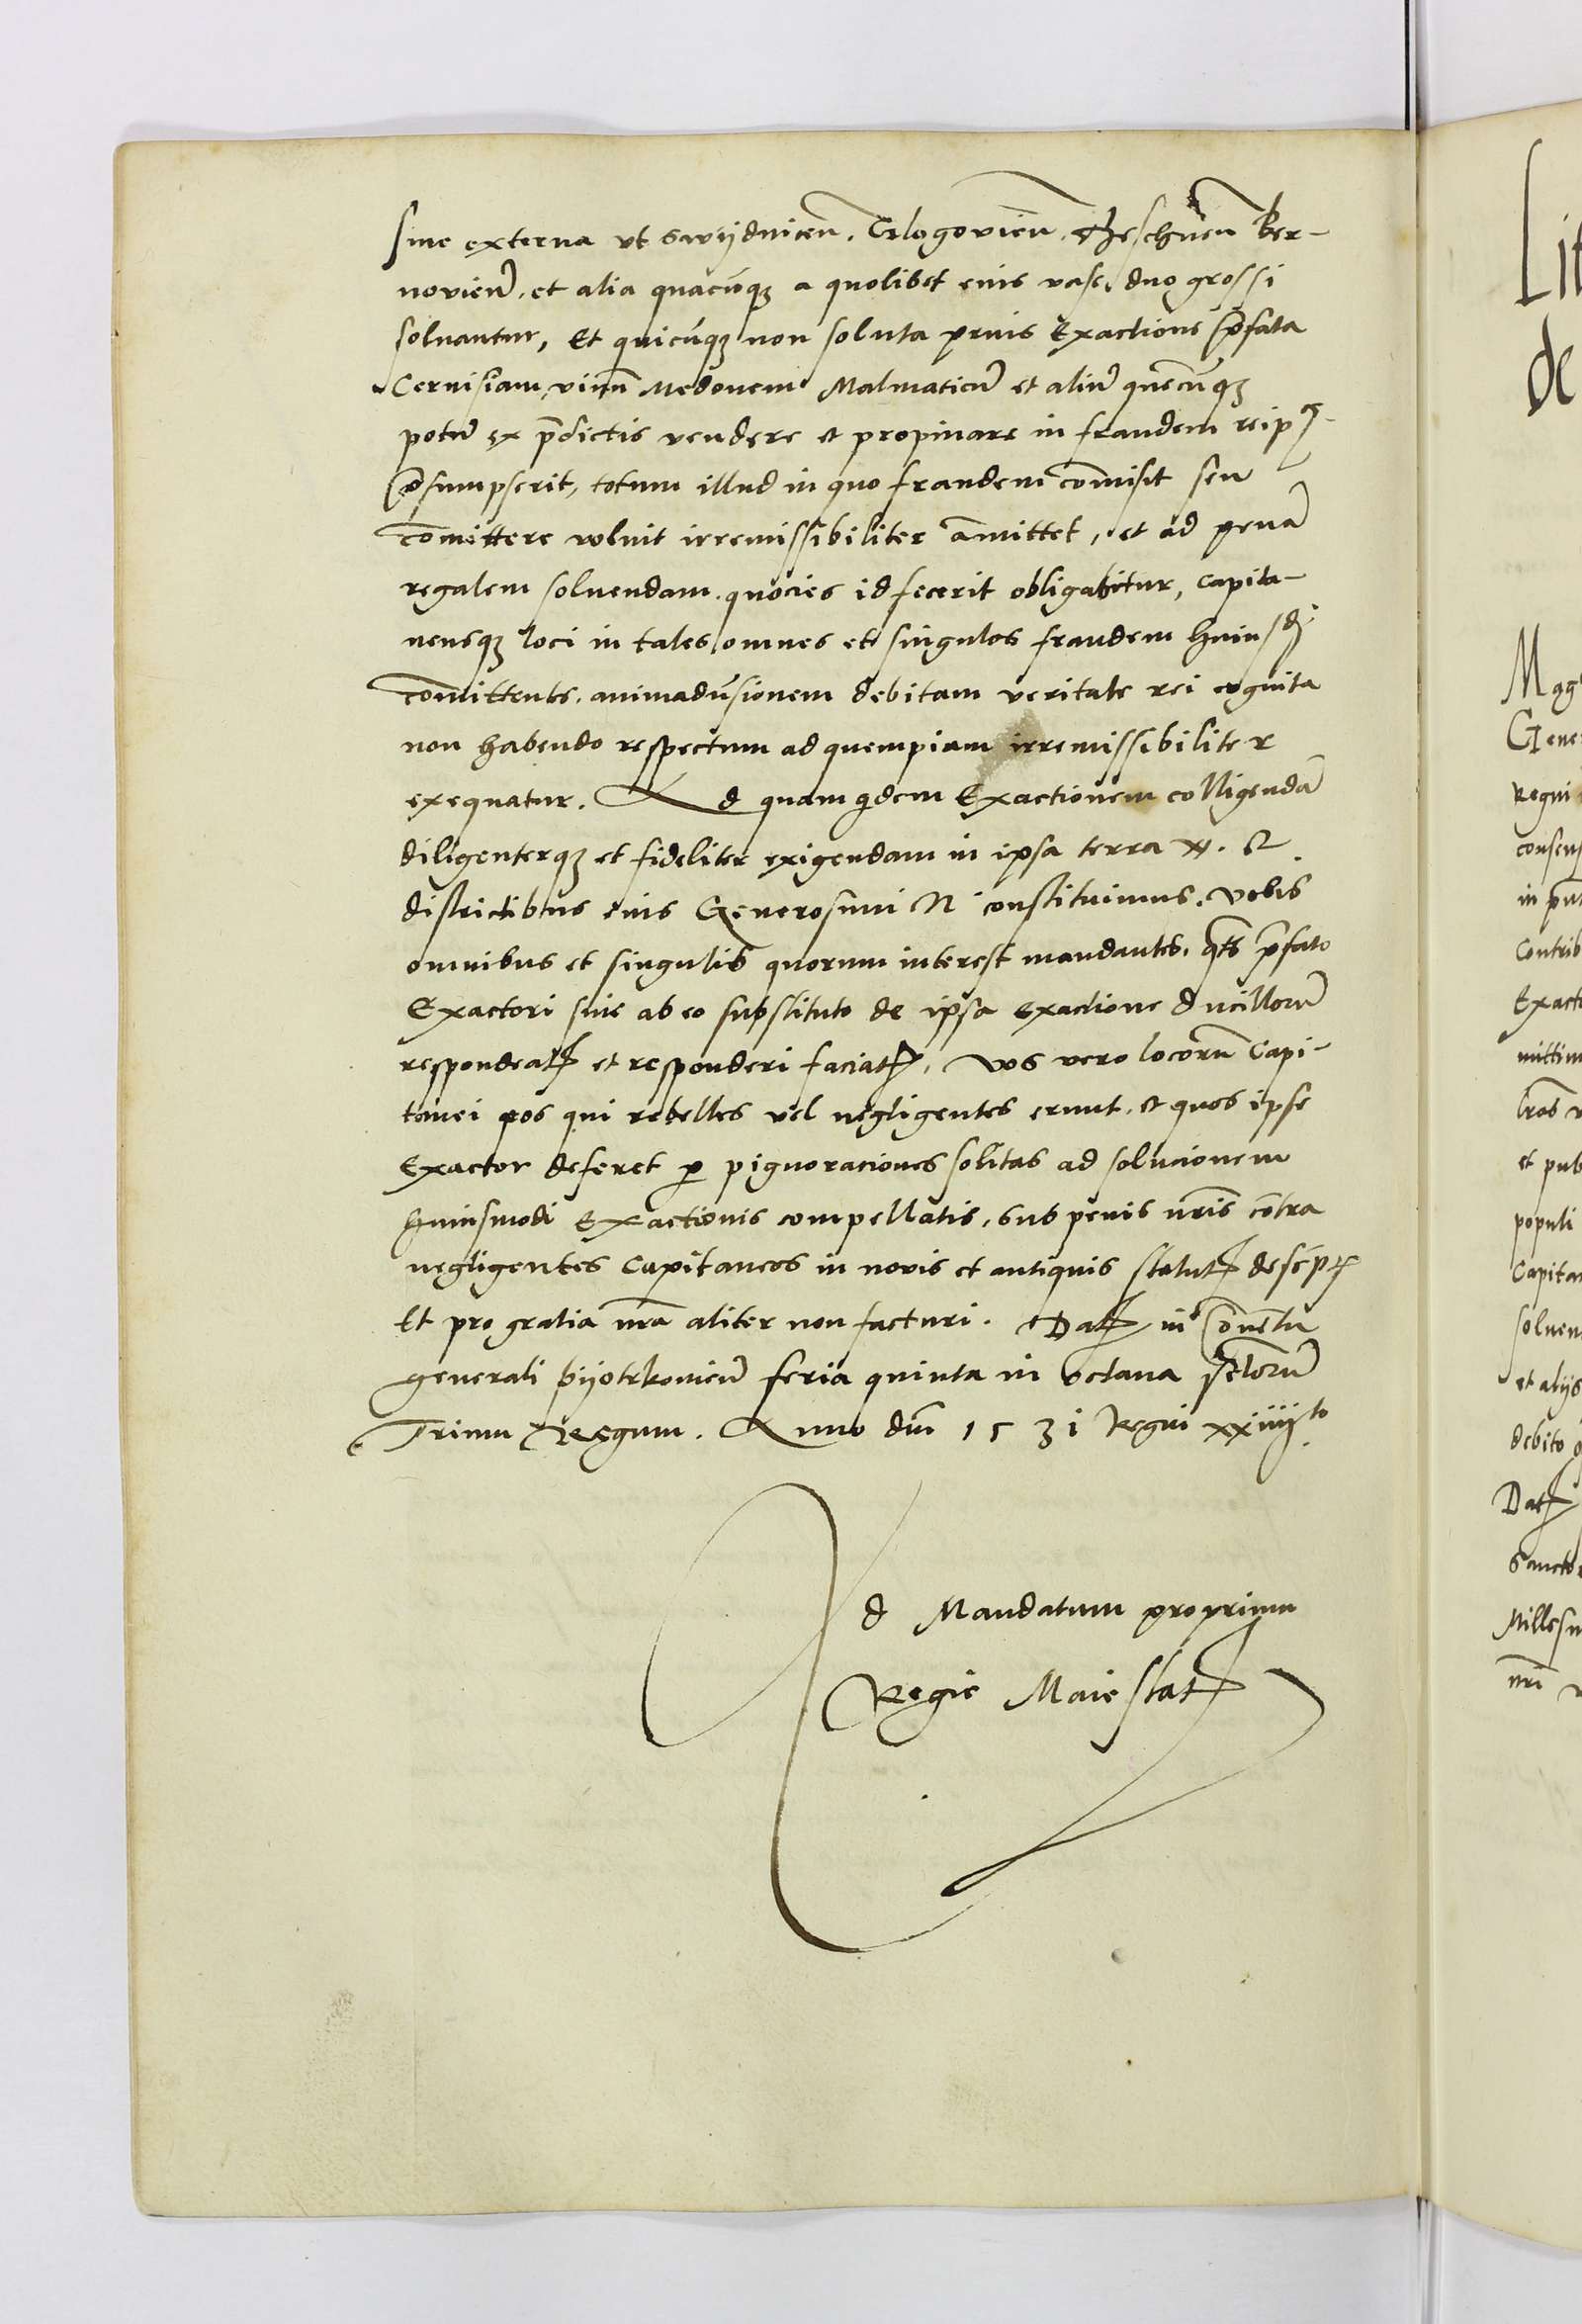 siue externa vt Swijdniceñ. Glogovieñ. Theschineñ Ber-
novieñ. et alia quacũqȝ a quolibet eius vase. duo grossi
soluantur, Et quicũqȝ non soluta prius Exactione p̄fata
Ceruisiam, vinũ Medonem Malmaticũ et aliũ quẽcũqȝ
potũ ex p̄dictis vendere et propinare in fraudem reip
p̄sumpserit, totum illud in quo fraudem cõmisit seu
cõmittere voluit irremissibiliter ãmittet, et ad penã
regalem soluendam. quocies id fecerit obligabitur, Capita-
neusqȝ loci in tales omnes et singulos fraudem huiusdi
cõmittentes. animaduˢsionem debitam veritate rei cognita
non habendo respectum ad quempiam irremissibiliter
exequatur. Ad quam qⁱdem Exactionem colligendã
diligenterqȝ et fideliter exigendam in ipsa terra N. &
districtibus eius Generosum N constituimus. Vobis
omnibus et singulis quorum interest mandantes. q̃ts p̄fato
Exactori siue ab eo substituto de ipsa exactione ducillorũ
respondeatꝭ et responderi faciatꝭ. vos vero locorũ Capi-
tanei eos qui rebelles vel negligentes erunt. et quos ipse
Exactor deferet ꝑ pignoraciones solitas ad solucionem
huiusmodi Exactionis compellatis. sub penis nr̃is cõtra
negligentes Capitaneos in novis et antiquis statutꝭ descriptꝭ
Et pro gratia nr̃a aliter non facturi. Datꝭ in Conuẽtu
generali Pijotrkovieñ feria quinta in octaua sctõrũ
Trium Regum. Anno dñi 1531 Regni xxiiijᵗᵒ.
Ad Mandatum proprium
Regie Maiestatꝭ
Lit
de
Mag
Gene
Regni
consens
in
Contrib
Exacto
mittim
lr̃as
et pub
populi
Capita
soluen
et alijs
debito
Datꝭ
Sancto
Millesi
nr̃i